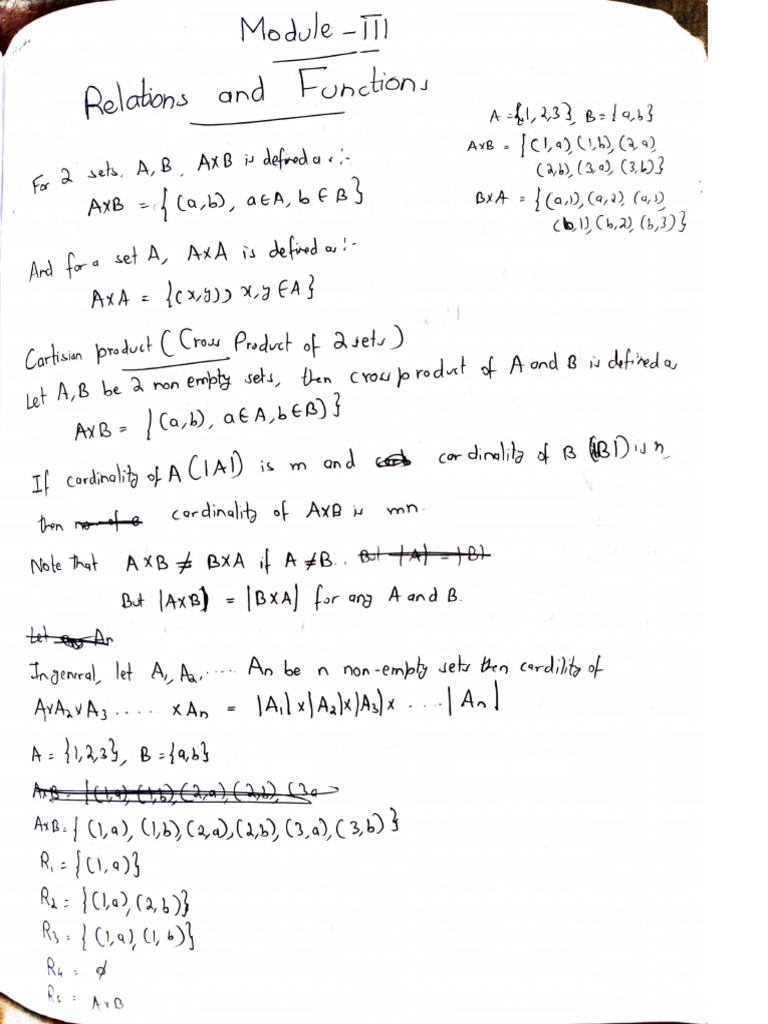 Module - III
Relations and Functions
A = {1, 2, 3}, B = {a, b}
AxB = {(1, a), (1, b), (2, a)
(2, b), (3, a), (3, b)}
BxA = {(a, 1), (a, 2), (a, 3)
(b, 1), (b, 2), (b, 3)}
For 2 sets, A, B, AxB is defined as :-
AxB = {(a, b), a∈A, b∈B}
And for a set A, AxA is defined as :-
AxA = {(x, y), x, y∈A}
Cartisian product (Cross Product of 2 sets)
Let A, B be 2 non empty sets, then cross product of A and B is defined as
AxB = {(a, b), a∈A, b∈B)}
If cardinality of A (|A|) is m and cardinality of B (|B|) is n
then cardinality of AxB is mn.
Note that AxB ≠ BxA if A ≠ B. But |A| = |B|
But |AxB| = |BxA| for any A and B.
Let An
In general, let A₁, A₂, ..... An be n non-empty sets then cardility of
A₁xA₂xA₃ ..... x An = |A₁|x|A₂|x|A₃|x ....|An|
A = {1, 2, 3}, B = {a, b}
AxB = {(1, a), (1, b), (2, a), (2, b), (3, a
AxB = {(1, a), (1, b), (2, a), (2, b), (3, a), (3, b)}
R₁ = {(1, a)}
R₂ = {(1, a), (2, b)}
R₃ = {(1, a), (1, b)}
R₄ = ϕ
R₅ = AxB